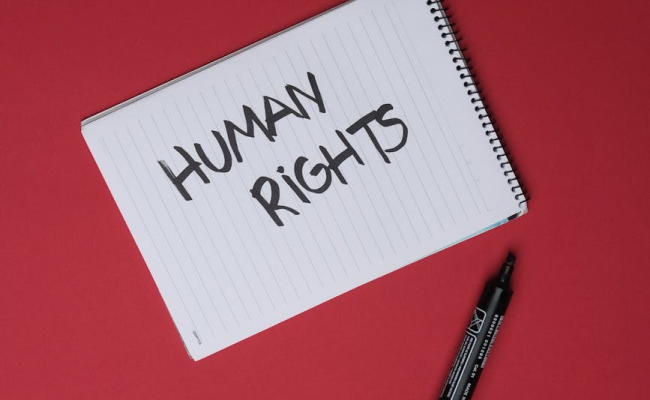 HUMAN
RiGHTS